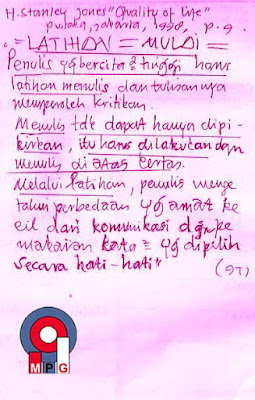 H. Stanley Jones "Quality of Life"
pustaka, Jakarta, 1998, p. 9
= LATIHAN = MULAI =
Penulis yg bercita2 tinggi harus
latihan menulis dan tulisannya
memperoleh kritikan.
Menulis tdk dapat hanya dipi-
kirkan, itu harus dilakukan dgn
menulis di atas kertas.
Melalui latihan, penulis menge
tahui perbedaan yg amat ke
cil dari komunikasi dgn pe
makaian kata2 yg dipilih
secara hati-hati"
MPG